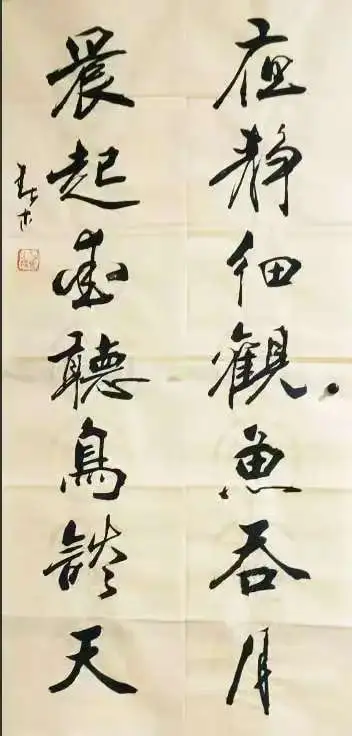 夜静细觀魚吞月
晨起愛聽鳥談天